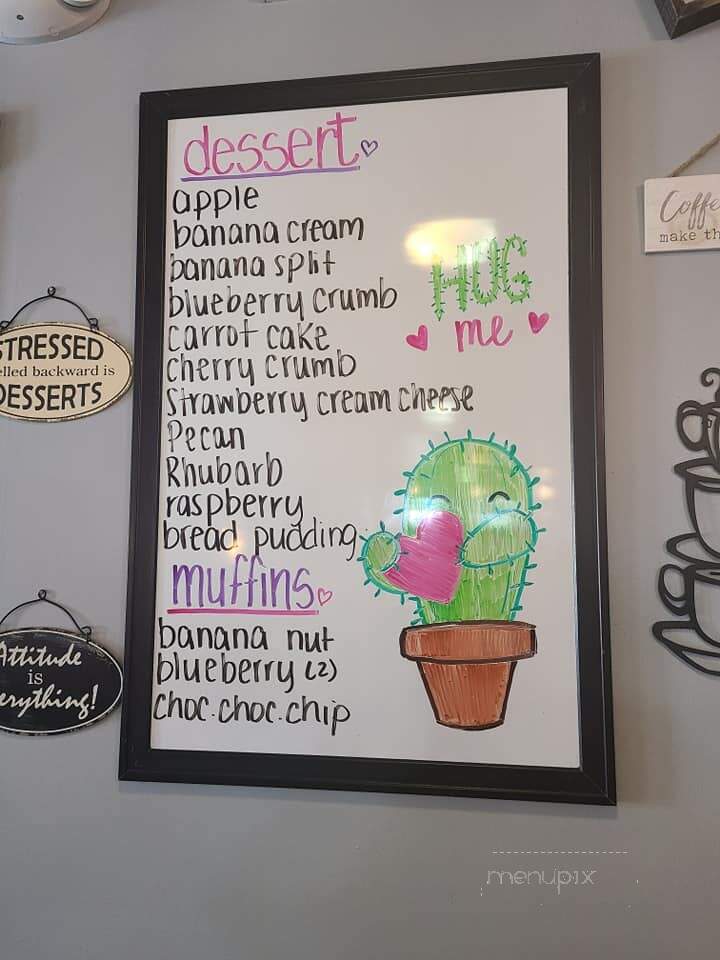 dessert
apple
banana cream
banana split
blueberry crumb
carrot cake
cherry crumb
Strawberry cream cheese
Pecan
Rhubarb
raspberry
bread pudding
muffins
banana nut
blueberry (2)
choc. choc. chip
HUG
me
STRESSED
elled backward is
DESSERTS
Attitude
is
erything!
Coffe
make th
menupix